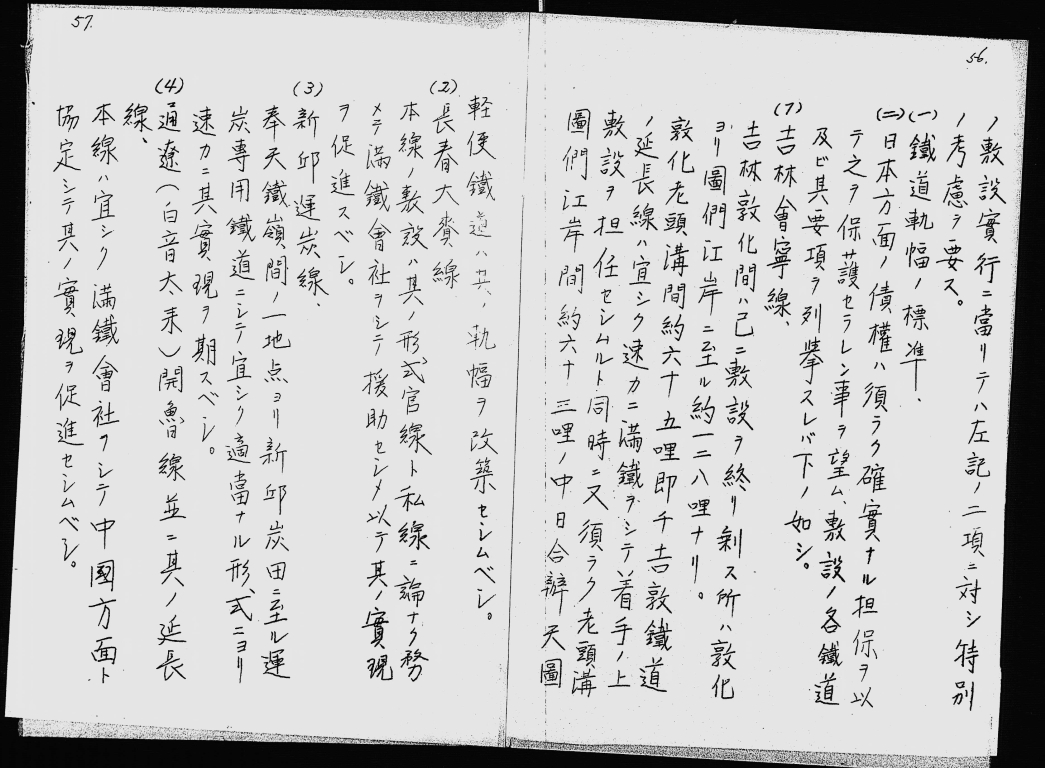 56.
ノ敷設實行ニ當リテハ左記ノ二項ニ対シ特別
ノ考慮ヲ要ス。
(一)鐵道軌幅ノ標準、
(二)日本方面ノ債權ハ須ラク確實ナル担保ヲ以
テ之ヲ保護セラレン事ヲ望ム、敷設ノ各鐵道
及ビ其要項ヲ列挙スレバ下ノ如シ。
(1)吉林會寧線、
吉林敦化間ハ己ニ敷設ヲ終リ剰ス所ハ敦化
ヨリ圖們江岸ニ至ル約一二八哩ナリ。
敦化老頭溝間約六十五哩即チ吉敦鐵道
ノ延長線ハ宜シク速カニ満鐵ヲシテ着手ノ上
敷設ヲ担任セシムルト同時ニ又須ラク老頭溝
圖們江岸間約六十三哩ノ中日合辦天圖
57.
軽便鐵道ハ其ノ軌幅ヲ改築セシムベシ。
(2)長春大賚線
本線ノ敷設ハ其ノ形式官線ト私線ニ論ナク務
メテ満鐵會社ヲシテ援助セシメ以テ其ノ實現
ヲ促進スベシ。
(3)新邱運炭線、
奉天鐵嶺間ノ一地点ヨリ新邱炭田ニ至ル運
炭専用鐵道ニシテ宜シク適當ナル形式ニヨリ
速カニ其實現ヲ期スベシ。
(4)通遼(白音太耒)開魯線並ニ其ノ延長
線、
本線ハ宜シク満鐵會社ヲシテ中國方面ト
協定シテ其ノ實現ヲ促進セシムベシ。